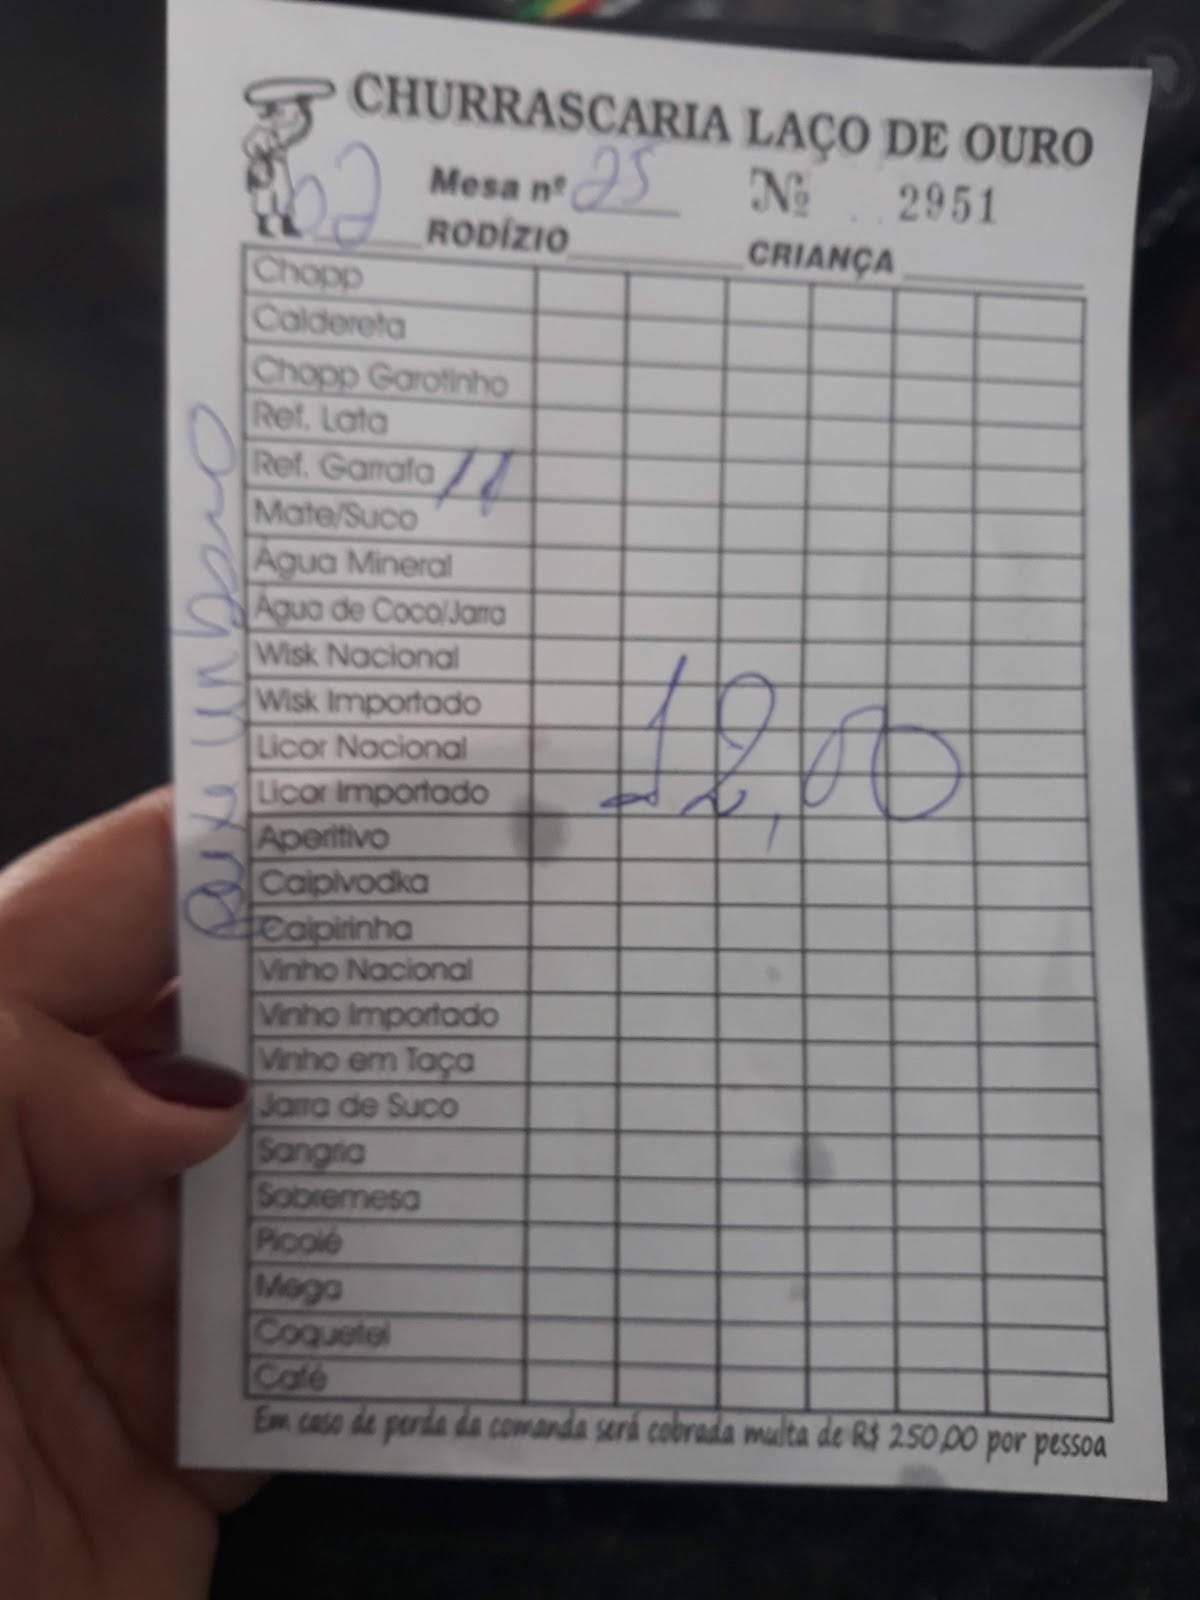 CHURRASCARIA LAÇO DE OURO
Mesa nº 25 Nº 2951
02 RODÍZIO CRIANÇA
Chopp
Caldereta
Chopp Garotinho
Ref. Lata
Ref. Garrafa 11
Mate/Suco
Água Mineral
Água de Coco/Jarra
Wisk Nacional
Wisk Importado
Licor Nacional
Licor Importado
12,00
Aperitivo
Caipivodka
Caipirinha
Vinho Nacional
Vinho Importado
Vinho em Taça
Jarra de Suco
Sangria
Sobremesa
Picolé
Mega
Coquetel
Café
Em caso de perda da comanda será cobrada multa de R$ 250,00 por pessoa